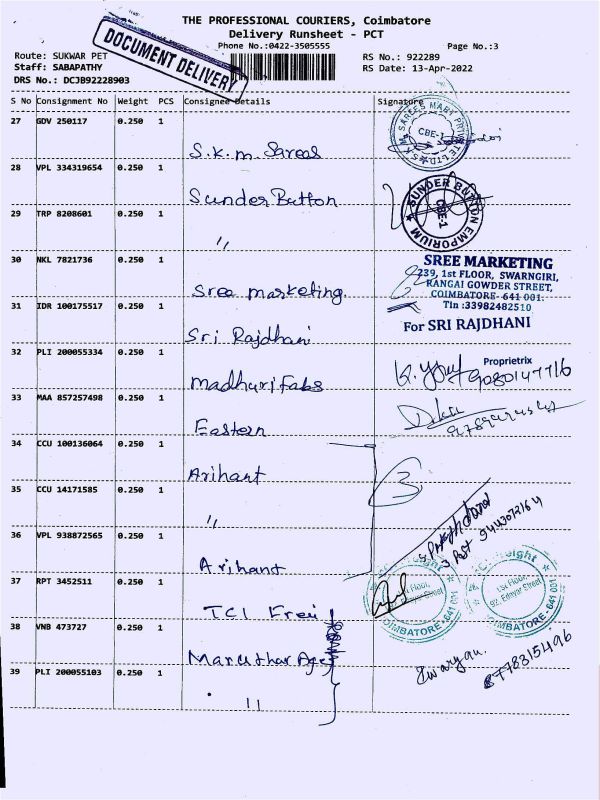 THE PROFESSIONAL COURIERS, Coimbatore
Delivery Runsheet - PCT
Phone No.:0422-3505555
Page No.:3
DOCUMENT DELIVERY
Route: SUKWAR PET
RS No.: 922289
Staff: SABAPATHY
RS Date: 13-Apr-2022
DRS No.: DCJB92228903
S No Consignment No Weight PCS Consignee Details Signature
27 GDV 250117 0.250 1
S.K.M. Sarees
CBE-1
28 VPL 334319654 0.250 1
Sunder Button
SUNDER BUTTON EMPORIUM CBE-1
29 TRP 8208601 0.250 1
"
30 NKL 7821736 0.250 1
Sree marketing.
SREE MARKETING
239, 1st FLOOR, SWARNGIRI,
RANGAI GOWDER STREET,
COIMBATORE- 641 001.
Tin :33982482510
31 IDR 100175517 0.250 1
Sri Rajdhani
For SRI RAJDHANI
Proprietrix
32 PLI 200055334 0.250 1
Madhuri fabs
9080147716
33 MAA 857257498 0.250 1
Eastern
34 CCU 100136064 0.250 1
Arihant
35 CCU 14171585 0.250 1
"
36 VPL 938872565 0.250 1
Arihant
37 RPT 3452511 0.250 1
TCI Frei
1st Floor,
92, Edayar Street
COIMBATORE - 641 001
38 VNB 473727 0.250 1
Maruthar Age
39 PLI 200055103 0.250 1
"
8778315496